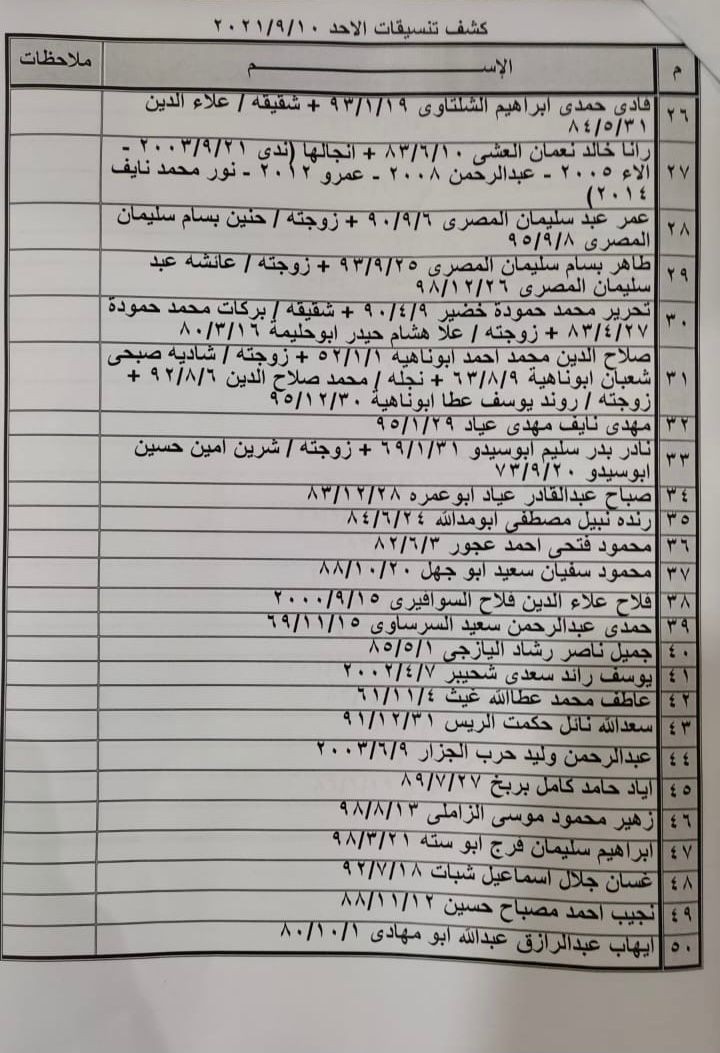 كشف تنسيقات الاحد ٢٠٢١/٩/١٠
م الإســـــم ملاحظات
٢٦ فادى حمدى ابراهيم الشلتاوى ٩٣/١/١٩ + شقيقه / علاء الدين
٨٤/٥/٣١
٢٧ رانا خالد نعمان العشى ٨٣/٦/١٠ + انجالها (ندى ٢٠٠٣/٩/٢١ -
الاء ٢٠٠٥ - عبدالرحمن ٢٠٠٨ - عمرو ٢٠١٢ - نور محمد نايف
٢٠١٤)
٢٨ عمر عبد سليمان المصرى ٩٠/٩/٦ + زوجته / حنين بسام سليمان
المصرى ٩٥/٩/٨
٢٩ طاهر بسام سليمان المصرى ٩٣/٩/٢٥ + زوجته / عائشه عبد
سليمان المصرى ٩٨/١٢/٢٦
٣٠ تحرير محمد حمودة خضير ٩٠/٤/٩ + شقيقه / بركات محمد حمودة
٨٣/٤/٢٧ + زوجته / علا هشام حيدر ابوحليمة ٨٠/٣/١٦
٣١ صلاح الدين محمد احمد ابوناهيه ٥٢/١/١ + زوجته / شاديه صبحى
شعبان ابوناهية ٦٣/٨/٩ + نجله / محمد صلاح الدين ٩٢/٨/٦ +
زوجته / روند يوسف عطا ابوناهية ٩٥/١٢/٣٠
٣٢ مهدى نايف مهدى عياد ٩٥/١/٢٩
٣٣ نادر بدر سليم ابوسيدو ٦٩/١/٣١ + زوجته / شرين امين حسين
ابوسيدو ٧٣/٩/٢٠
٣٤ صباح عبدالقادر عياد ابوعمره ٨٣/١٢/٢٨
٣٥ رنده نبيل مصطفى ابومدالله ٨٤/٦/٢٤
٣٦ محمود فتحى احمد عجور ٨٢/٦/٣
٣٧ محمود سفيان سعيد ابو جهل ٨٨/١٠/٢٠
٣٨ فلاح علاء الدين فلاح السوافيرى ٢٠٠٠/٩/١٥
٣٩ حمدى عبدالرحمن سعيد السرساوى ٦٩/١١/١٥
٤٠ جميل ناصر رشاد اليازجى ٨٥/٥/١
٤١ يوسف رائد سعدى شحيبر ٢٠٠٢/٤/٧
٤٢ عاطف محمد عطاالله غيث ٦١/١١/٤
٤٣ سعدالله نائل حكمت الريس ٩١/١٢/٣١
٤٤ عبدالرحمن وليد حرب الجزار ٢٠٠٣/٦/٩
٤٥ اياد حامد كامل بربخ ٨٩/٧/٢٧
٤٦ زهير محمود موسى الزاملى ٩٨/٨/١٣
٤٧ ابراهيم سليمان فرج ابو سته ٩٨/٣/٢١
٤٨ غسان جلال اسماعيل شبات ٩٢/٧/١٨
٤٩ نجيب احمد مصباح حسين ٨٨/١١/١٢
٥٠ ايهاب عبدالرازق عبدالله ابو مهادى ٨٠/١٠/١